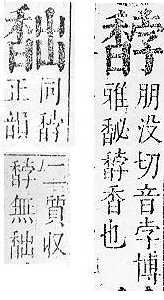 馞
朋没切音孛博
雅馝馞香也
同馞
正韻
二賈收
馞無